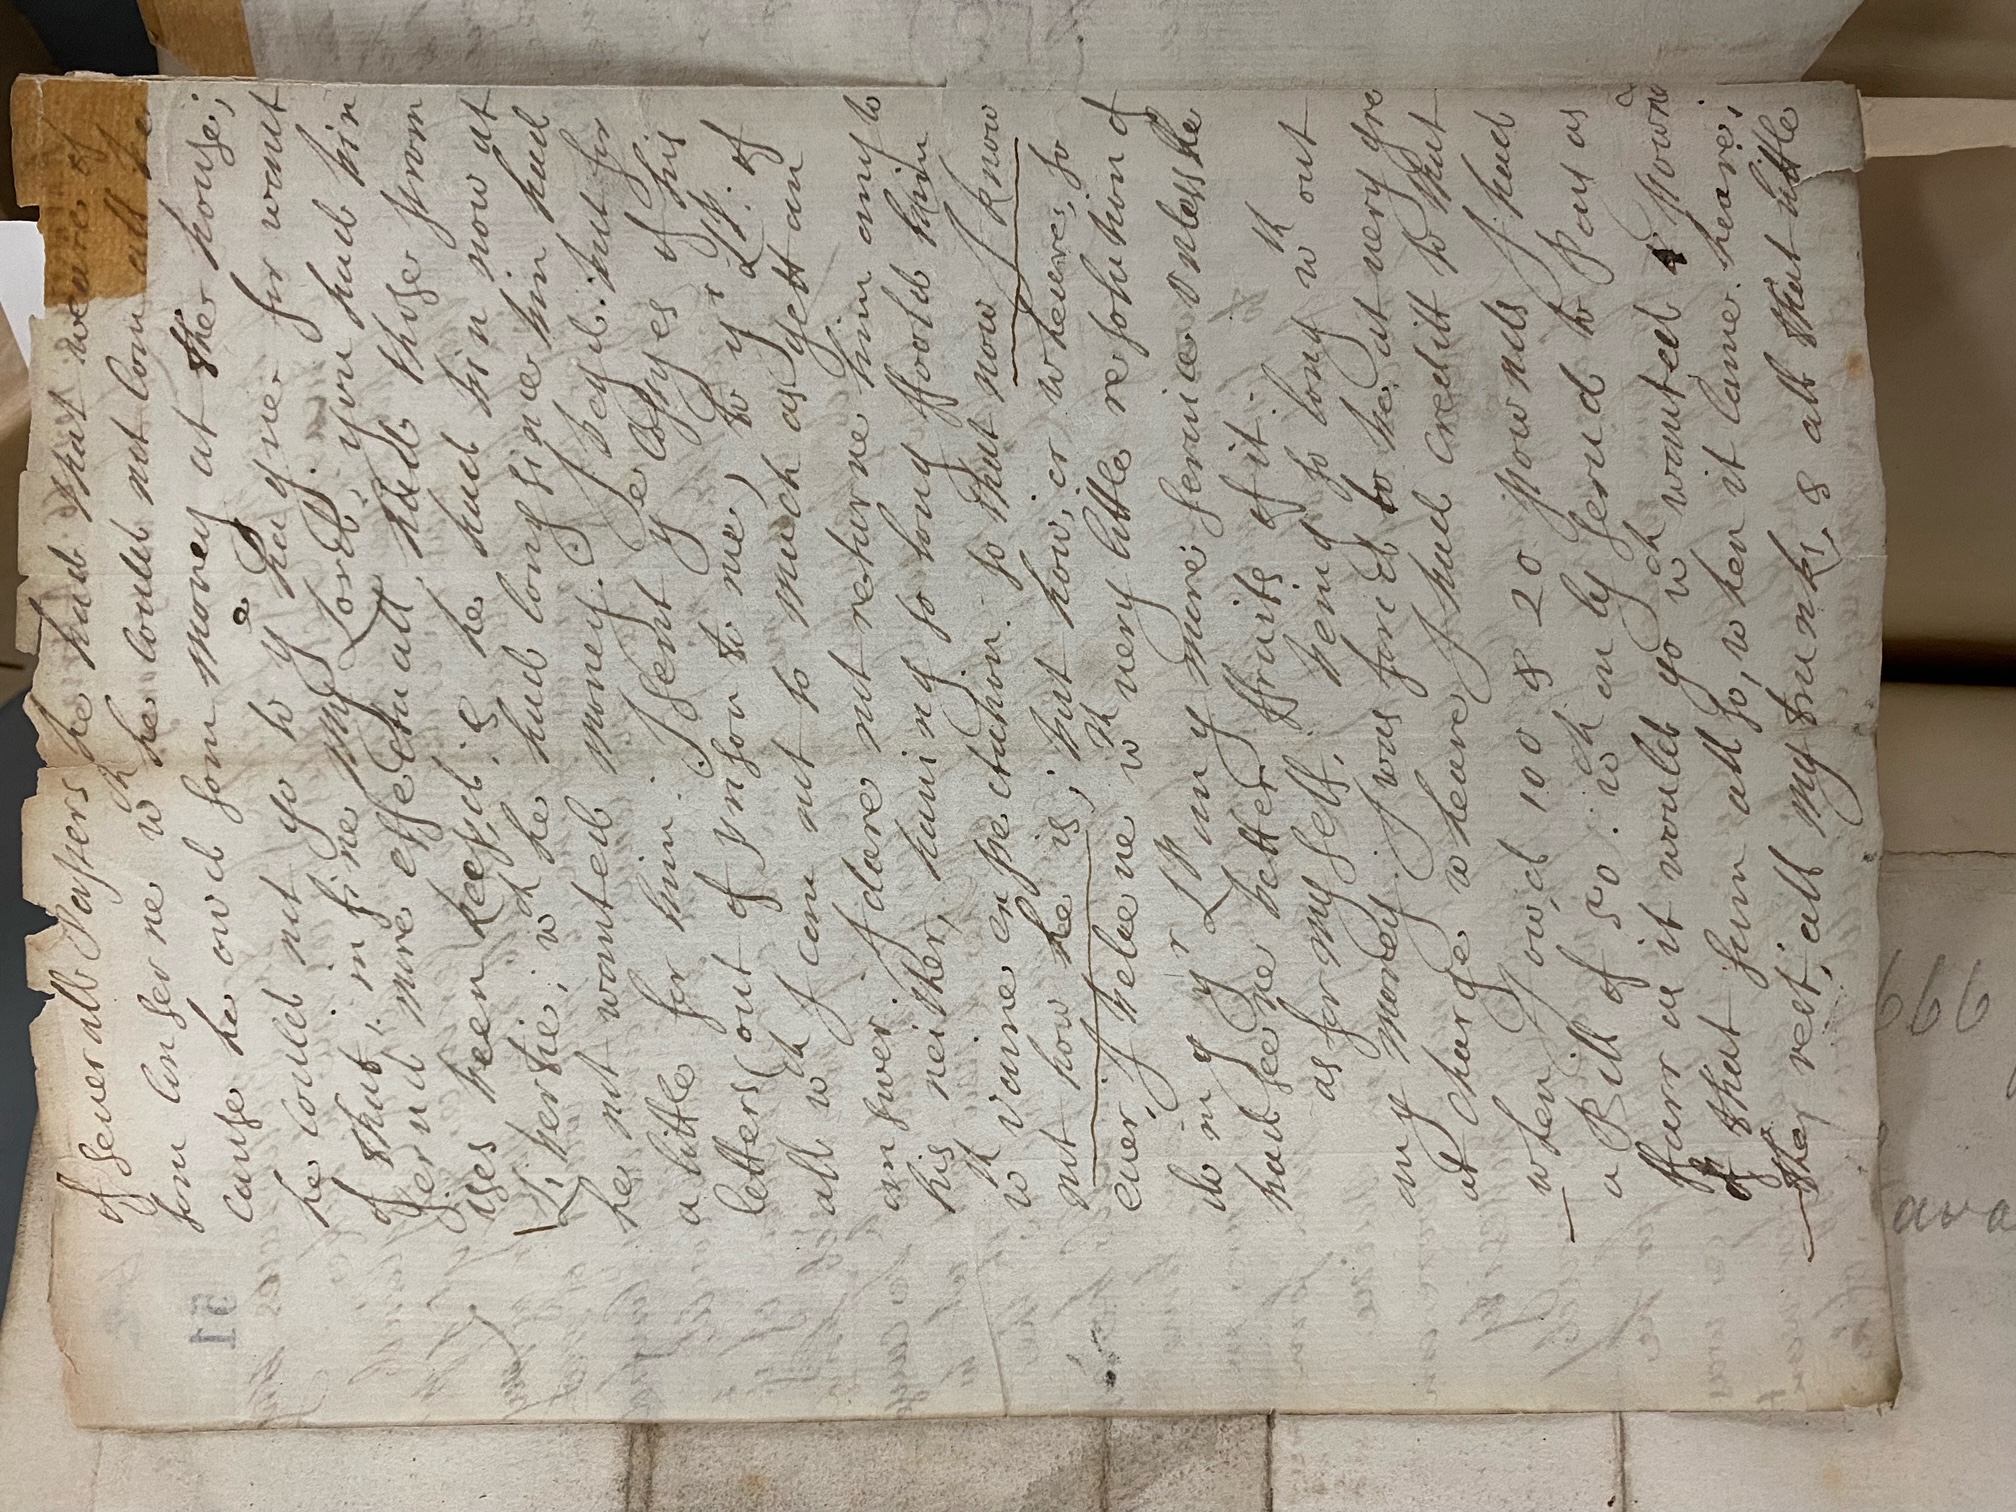 of severall Papers he had that weare of
som conserne wch he could not com att be
cause he owd som money at ther house;
he could not go to ye hagne for want
of that; in fine my Lord, you had bin
serud more effectuall, had thoge from
been keept, & he had bin now at
Libertie, wch he had long sine bin had
he not wanted money. I beg d: but for
a little for him. I sent ye Copyes of his
letters (out of prison to me) to yr Lp. of
all wch I can not so much as gett an
answer. I dare not returne him any to
his neither, having so long foold him
wth vaine expectation. so that now I know
not how he is, but how, or wheare, so
ever, I beleve wth very little resolution of
doing yr Lp any more service unless he
had seene better ffruits of it.
as for my self, being so long wth out
any money I was forced to be at very gre
at charge wheare I had creditt so that
when I ow,d 100 & 20 pownds I had
a Bill of 50. wch only servd to Pay as
ffarr as it would go wch wanted a pown
of that sum allso, when it came heare;
they rest, all my trunks, & all that little
51
666